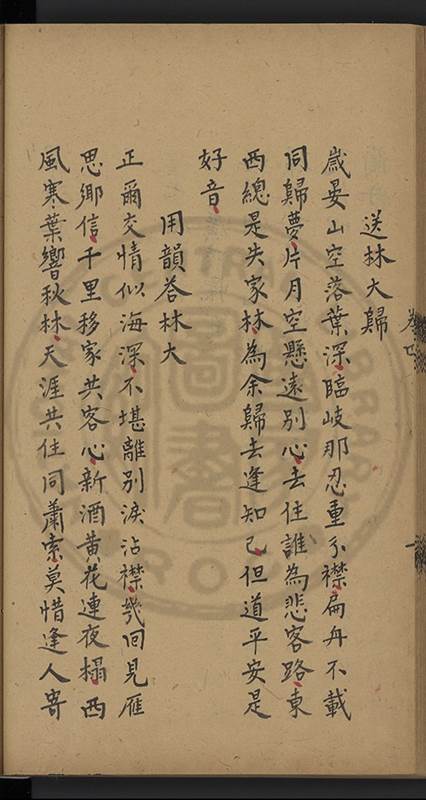 送林大歸
歲晏山空落葉深臨岐那忍重分襟扁舟不載
同歸夢片月空懸遠別心去住誰為悲客路東
西總是失家林為余歸去逢知己但道平安是
好音
用韻答林大
正爾交情似海深不堪離別淚沾襟幾回見雁
思鄉信千里移家共客心新酒黃花連夜榻西
風寒葉響秋林天涯共住同蕭索莫惜逢人寄